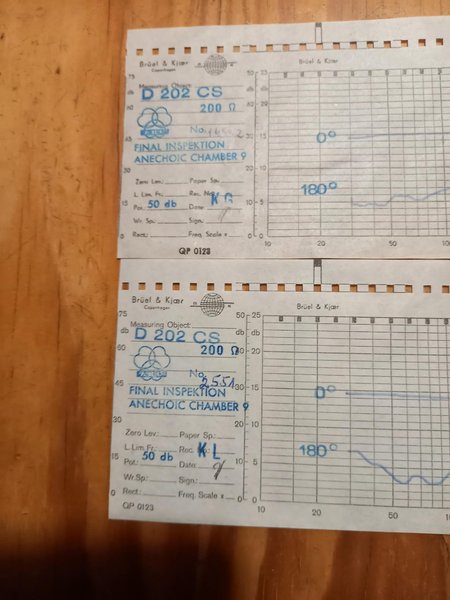 Brüel & Kjær
Copenhagen
Brüel & Kjær
Measuring Object:
D 202 CS
200 Ω
No.
FINAL INSPEKTION
ANECHOIC CHAMBER 9
Zero Lev.: Paper Sp.:
L. Lim. Fr.: Rec. No.: KG
Pot.: 50 db Date:
Wr. Sp.: Sign.:
Rect.: Freq. Scale x
QP 0123
75 db 60 45 30 15 0
50 25 db db 40 20 30 15 20 10 10 5 0 0
0°
180°
10 20 50 100
Brüel & Kjær
Copenhagen
Brüel & Kjær
Measuring Object:
D 202 CS
200 Ω
No. 2551
FINAL INSPEKTION
ANECHOIC CHAMBER 9
Zero Lev.: Paper Sp.:
L. Lim. Fr.: Rec. No.: KL
Pot.: 50 db Date:
Wr. Sp.: Sign.:
Rect.: Freq. Scale x
QP 0123
75 db 60 45 30 15 0
50 25 db db 40 20 30 15 20 10 10 5 0 0
0°
180°
10 20 50